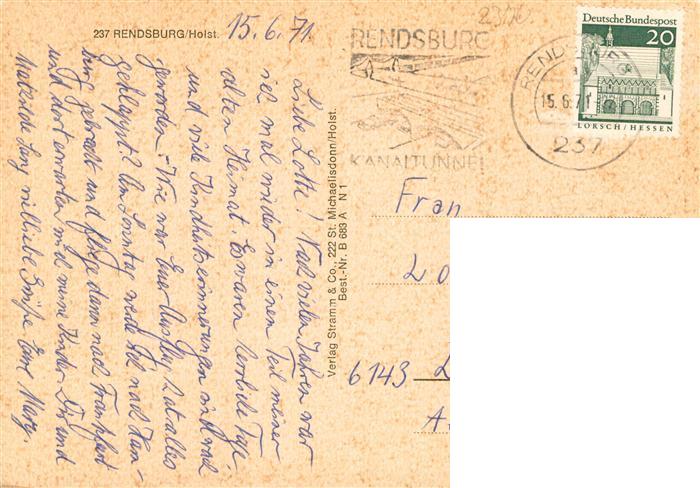 237 RENDSBURG/Holst.
15.6.71.
Liebe Lotte! Nach vielen Jahren war
ich mal wieder in einem Teil meiner
alten Heimat. Es waren herrliche Tage
und viele Kindheitserinnerungen sind wach
geworden. Wie war Euer Ausflug, hat alles
geklappt? Am Sonntag werde ich nach Ham-
burg gebracht und fliege dann nach Frankfurt
und dort erwarten mich meine Kinder. Dir und
Mathilde Lenz vielliebe Grüße Eure Mary.
Verlag Stramm & Co., 222 St. Michaelisdonn/Holst.
Best.-Nr. B 683 A N 1
RENDSBURG
KANALTUNNEL
15.6.71
237
Deutsche Bundespost
20
LORSCH/HESSEN
Frau
Lo
6143
A